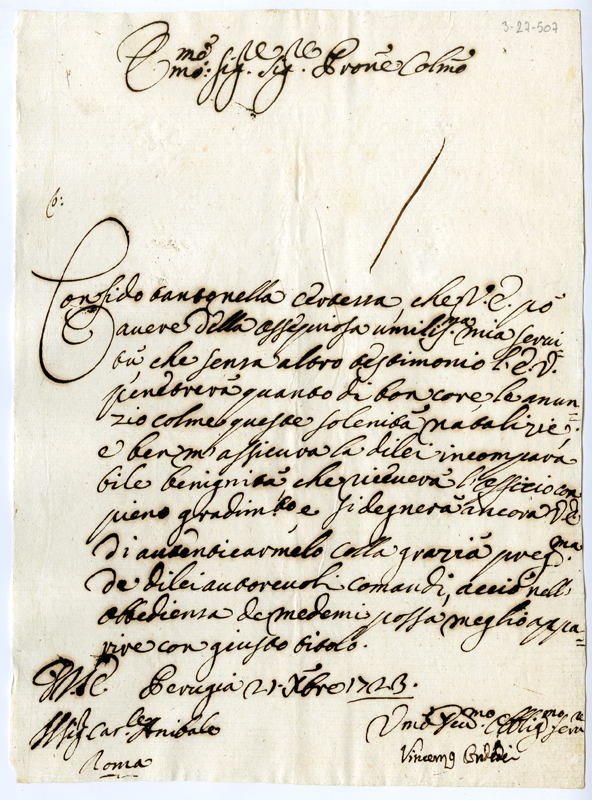 3-27-507
E.mo
mo: Sig.re Sig.re Prone Colmo
Confido tanto nella certezza che V. E. pò
avere della ossequiosa umiliss.ma mia servi
tù che senza altro testimonio l'E. V.
penetrerà quanto di bon core le anun=
zio colme queste solenità natalizie:
e ben m'assicura la dilei incompara
bile benignità che riceverà l'offitio con
pieno gradim.to e si degnerà ancora V. E.
di autenticarmelo colla grazia preg.ma
de dilei autorevoli comandi, acciò nell'
obbedienza de medemi possa meglio appa=
rire con giusto titolo.
Di V. E. Perugia 21 Xbre 1723.
Sig. Car.le Anibale
Roma
Umo Devmo Obligmo Serre
Vincenzo